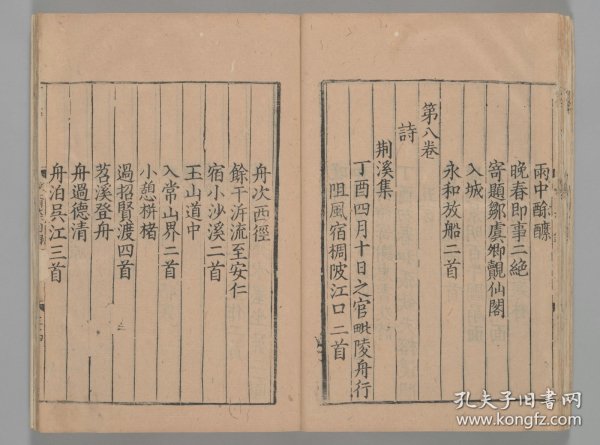 雨中酴醾
晚春即事二絶
寄題鄒虞卿覿仙閣
入城
永和放船二首
第八卷
詩
荆溪集
丁酉四月十日之官毗陵舟行
阻風宿椆陂江口二首
舟次西徑
餘干泝流至安仁
宿小沙溪二首
玉山道中
入常山界二首
小憩栟楮
過招賢渡四首
苕溪登舟
舟過德清
舟泊吴江三首
孔夫子旧书网
www.kongfz.com